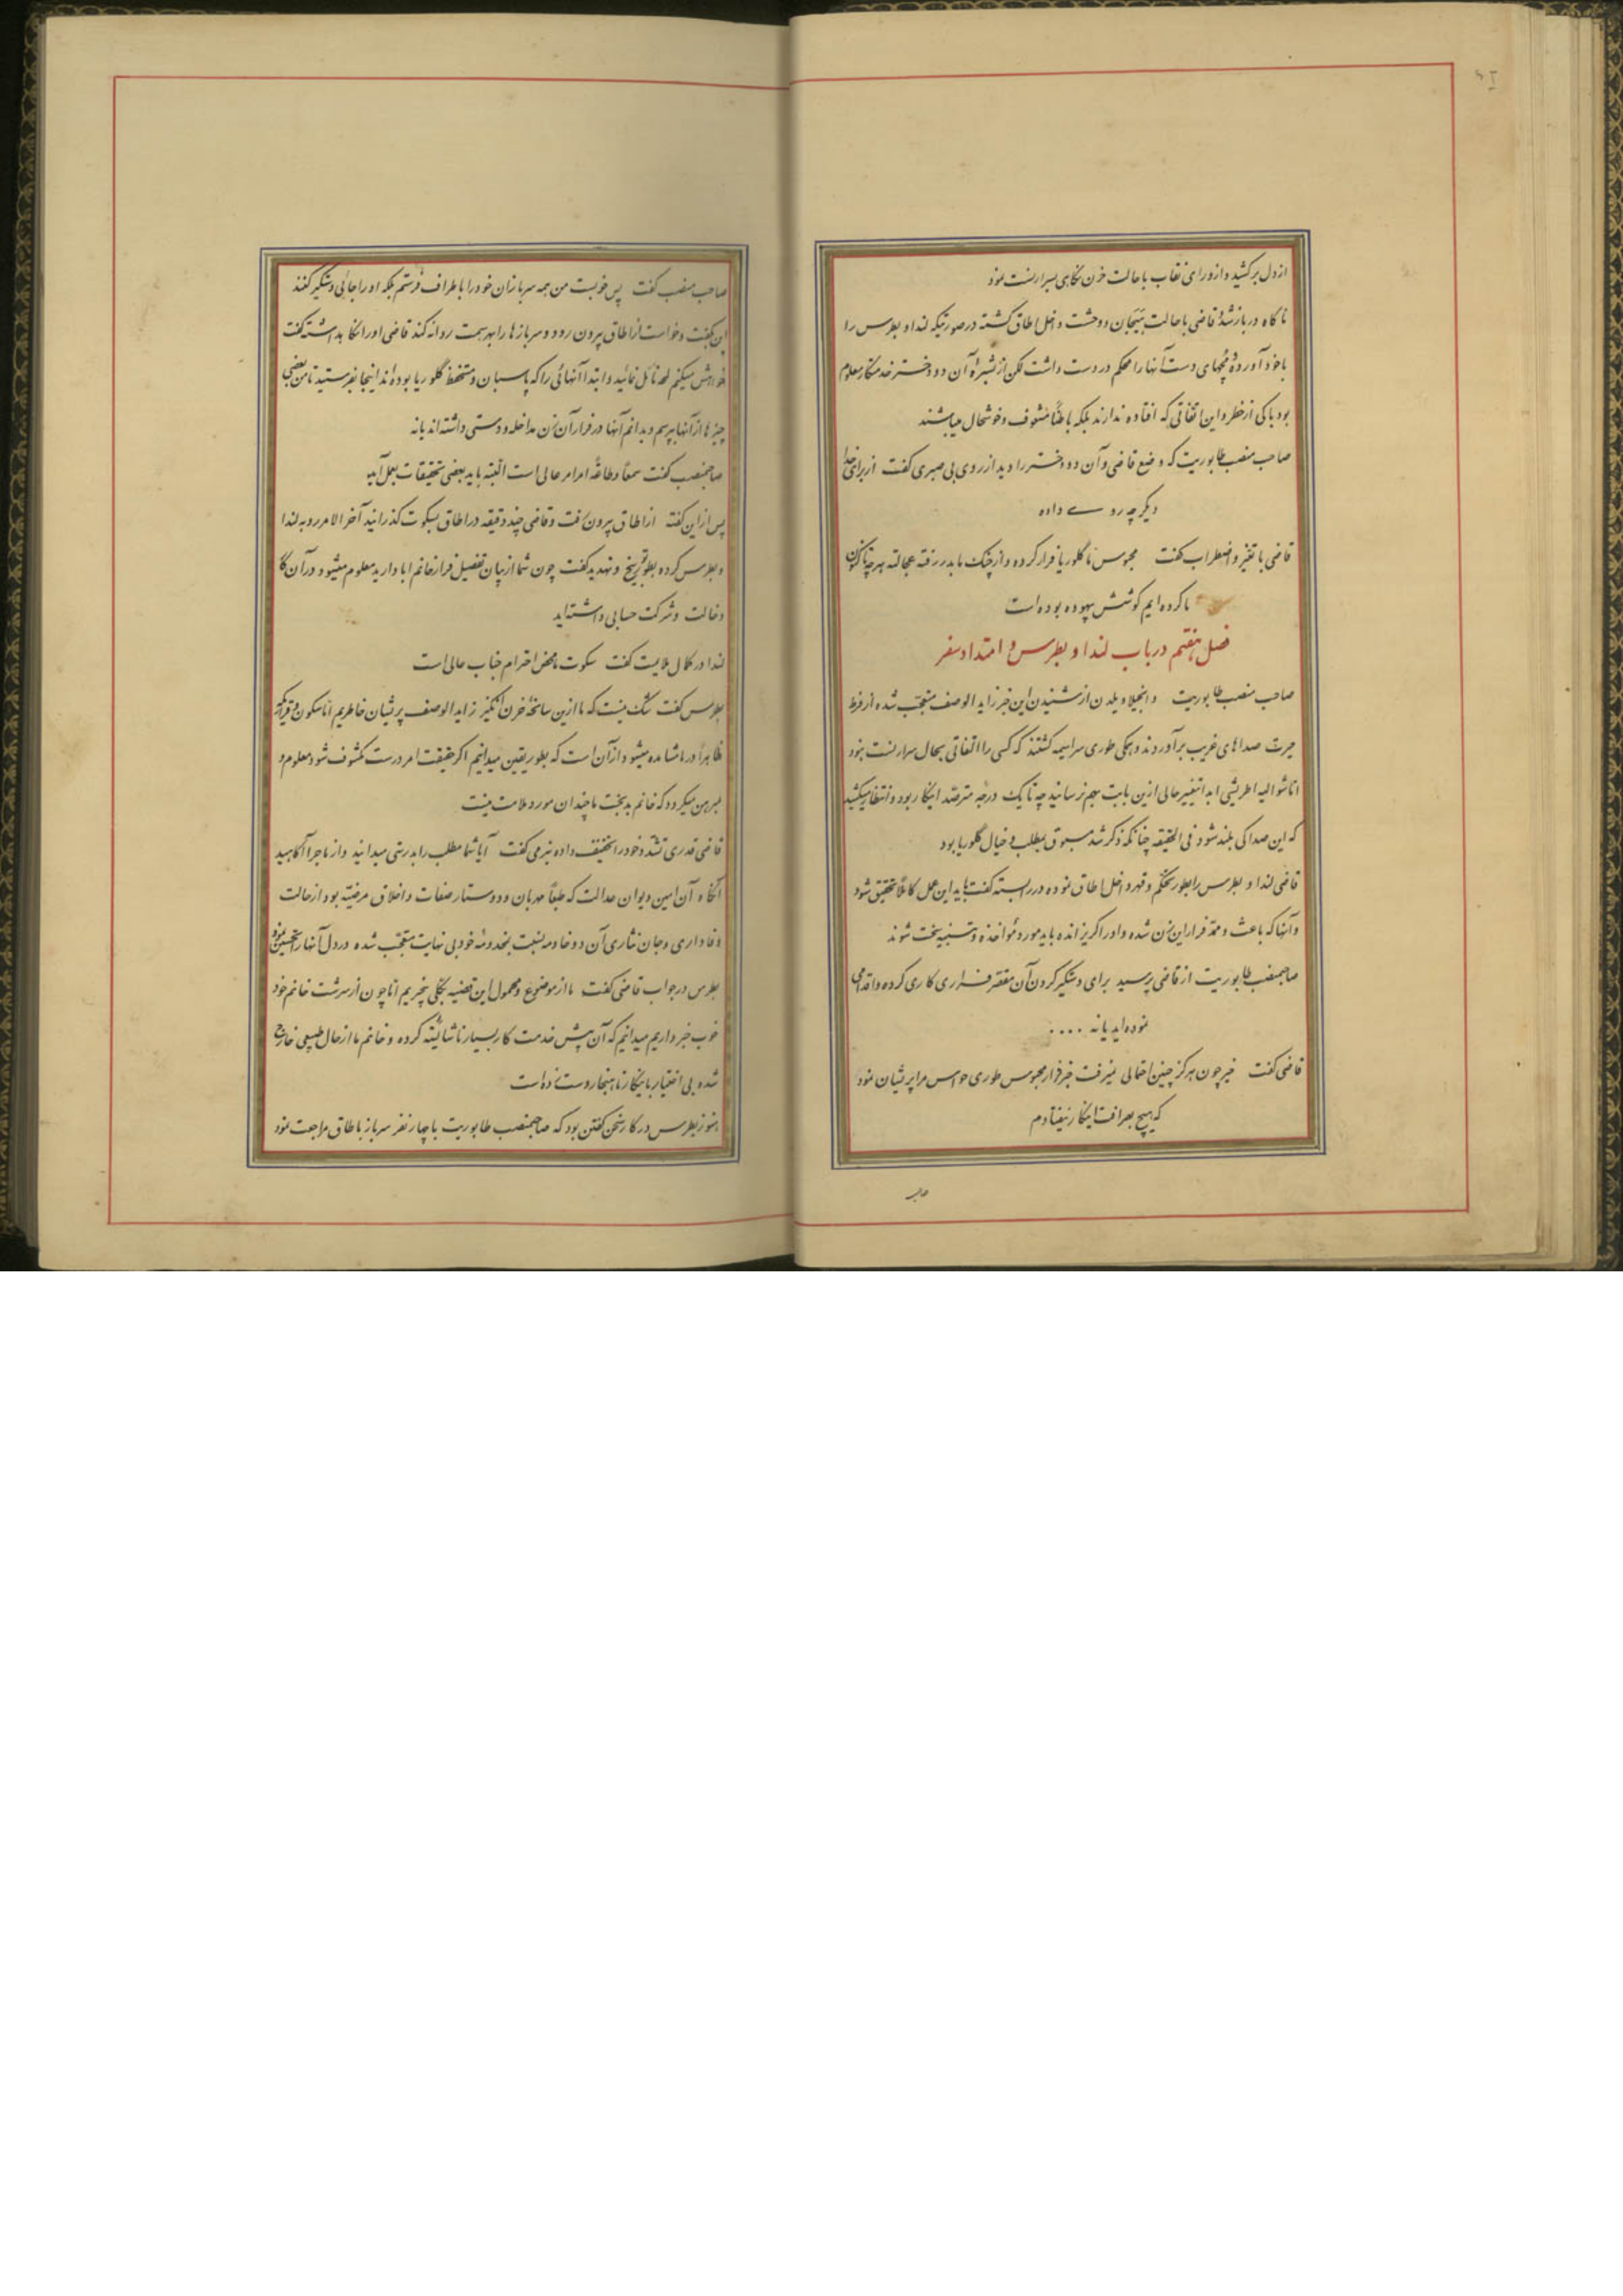 از دل برکشید و از ورای نقاب با حالت حزن نگاهی بسرارنست نمود
ناگاه در باز شد قاضی با حالت هیجان و وحشت داخل اطاق گشته در صورتیکه لندا و بطرس را
با خود آورده و مچهای دست آنها را محکم در دست داشت لکن از بشرهٔ آن دو دختر خدمتکار معلوم
بود باکی از خطر و این اتفاقی که افتاده ندارند بلکه باطناً مشعوف و خوشحال میباشند
صاحب منصب طابوریت که وضع قاضی و آن دو دختر را دید از روی بی صبری گفت از برای خدا
دیگر چه روی داده
قاضی با تغیر و اضطراب گفت محبوس ما گلوریا فرار کرده و از چنگ ما بدر رفته عجالة هر چه تاکنون
ما کرده ایم کوشش بیهوده بوده است
فصل هفتم در باب لندا و بطرس و امتداد سفر
صاحب منصب طابوریت و انجیلا ویلدن از شنیدن این خبر زاید الوصف متعجب شده از فرط
حیرت صداهای غریب برآوردند و همگی طوری سراسیمه گشتند که کسی را التفاتی بحال سرارنست نبود
اما شوالیه اطریشی ابدا تغییر حالی ازین بابت بهم نرسانید چه تا یک درجه مترصد اینکار بود و انتظار میکشید
که این صدا کی بلند شود فی الحقیقه چنانکه ذکر شد مسبوق بمطلب و خیال گلوریا بود
قاضی لندا و بطرس را بطور تحکم و قهر داخل اطاق نموده در را بسته گفت باید این عمل کاملاً تحقیق شود
و آنها که باعث و ممد فرار این زن شده و او را گریزانده باید مورد مؤاخذه و تنبیه سخت شوند
صاحبمنصب طابوریت از قاضی پرسید برای دستگیر کردن آن مقصر فراری کاری کرده و اقدامی
نموده اید یا نه ....
قاضی گفت خیر چون هرگز چنین احتمالی نمیرفت خبر فرار محبوس طوری حواس مرا پریشان نمود
که هیچ بصرافت اینکار نیفتادم
صاحب منصب گفت پس خوبست من همه سربازان خود را باطراف فرستم بلکه او را جائی دستگیر کنند
این بگفت و خواست از اطاق بیرون رود و سربازها را بهر سمت روانه کند قاضی او را نگاه بداشته گفت
خواهش میکنم لمحه تأمل نمائید و ابتدا آنهائی را که پاسبان و مستحفظ گلوریا بوده اند اینجا بفرستید تا من بعضی
چیزها از آنها بپرسم و بدانم آنها در فرار آن زن مداخله و دستی داشته اند یا نه
صاحبمنصب گفت سمعاً و طاعةً امر امر عالی است البته باید بعضی تحقیقات بعمل آید
پس از این گفته از اطاق بیرون رفت و قاضی چند دقیقه در اطاق بسکوت گذرانید آخر الامر رو به لندا
و بطرس کرده بطور توبیخ و تهدید گفت چون شما از بیان تفصیل فرار خانم ابا دارید معلوم میشود در آن کار
دخالت و شرکت حسابی داشته اید
لندا در کمال ملایمت گفت سکوت ما محض احترام جناب عالی است
بطرس گفت شک نیست که ما ازین سانحهٔ حزن انگیز زاید الوصف پریشان خاطریم اما سکون و قراریکه
ظاهراً در ما مشاهده میشود از آن است که بطور یقین میدانیم اگر حقیقت امر درست مکشوف شود معلوم و
مبرهن میگردد که خانم بدبخت ما چندان مورد ملامت نیست
قاضی قدری تشدد خود را تخفیف داده بنرمی گفت آیا شما مطلب را بدرستی میدانید و از ماجرا آگاهید
آنگاه آن امین دیوان عدالت که طبعاً مهربان و دوستار صفات و اخلاق مرضیه بود از حالت
وفاداری و جان نثاری آن دو خادمه نسبت بمخدومهٔ خود بی نهایت متعجب شده در دل آنها را تحسین نمود
بطرس در جواب قاضی گفت ما از موضوع و محمول این قضیه بکلی بیخبریم اما چون از سرشت خانم خود
خوب خبر داریم میدانیم که آن پیش خدمت کار بسیار ناشایسته کرده و خانم ما از حال طبیعی خارج
شده بی اختیار باینکار ناهنجار دست زده است
هنوز بطرس در کار سخن گفتن بود که صاحبمنصب طابوریت با چهار نفر سرباز باطاق مراجعت نمود